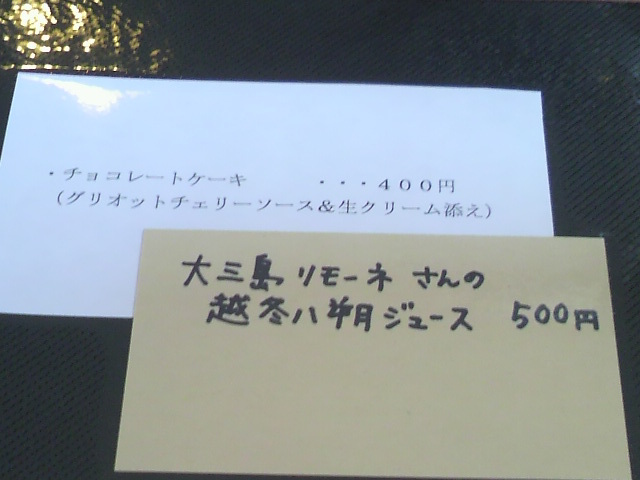 ・チョコレートケーキ　　　・・・４００円
（グリオットチェリーソース＆生クリーム添え）
大三島リモーネ さんの
越冬八朔ジュース　500円